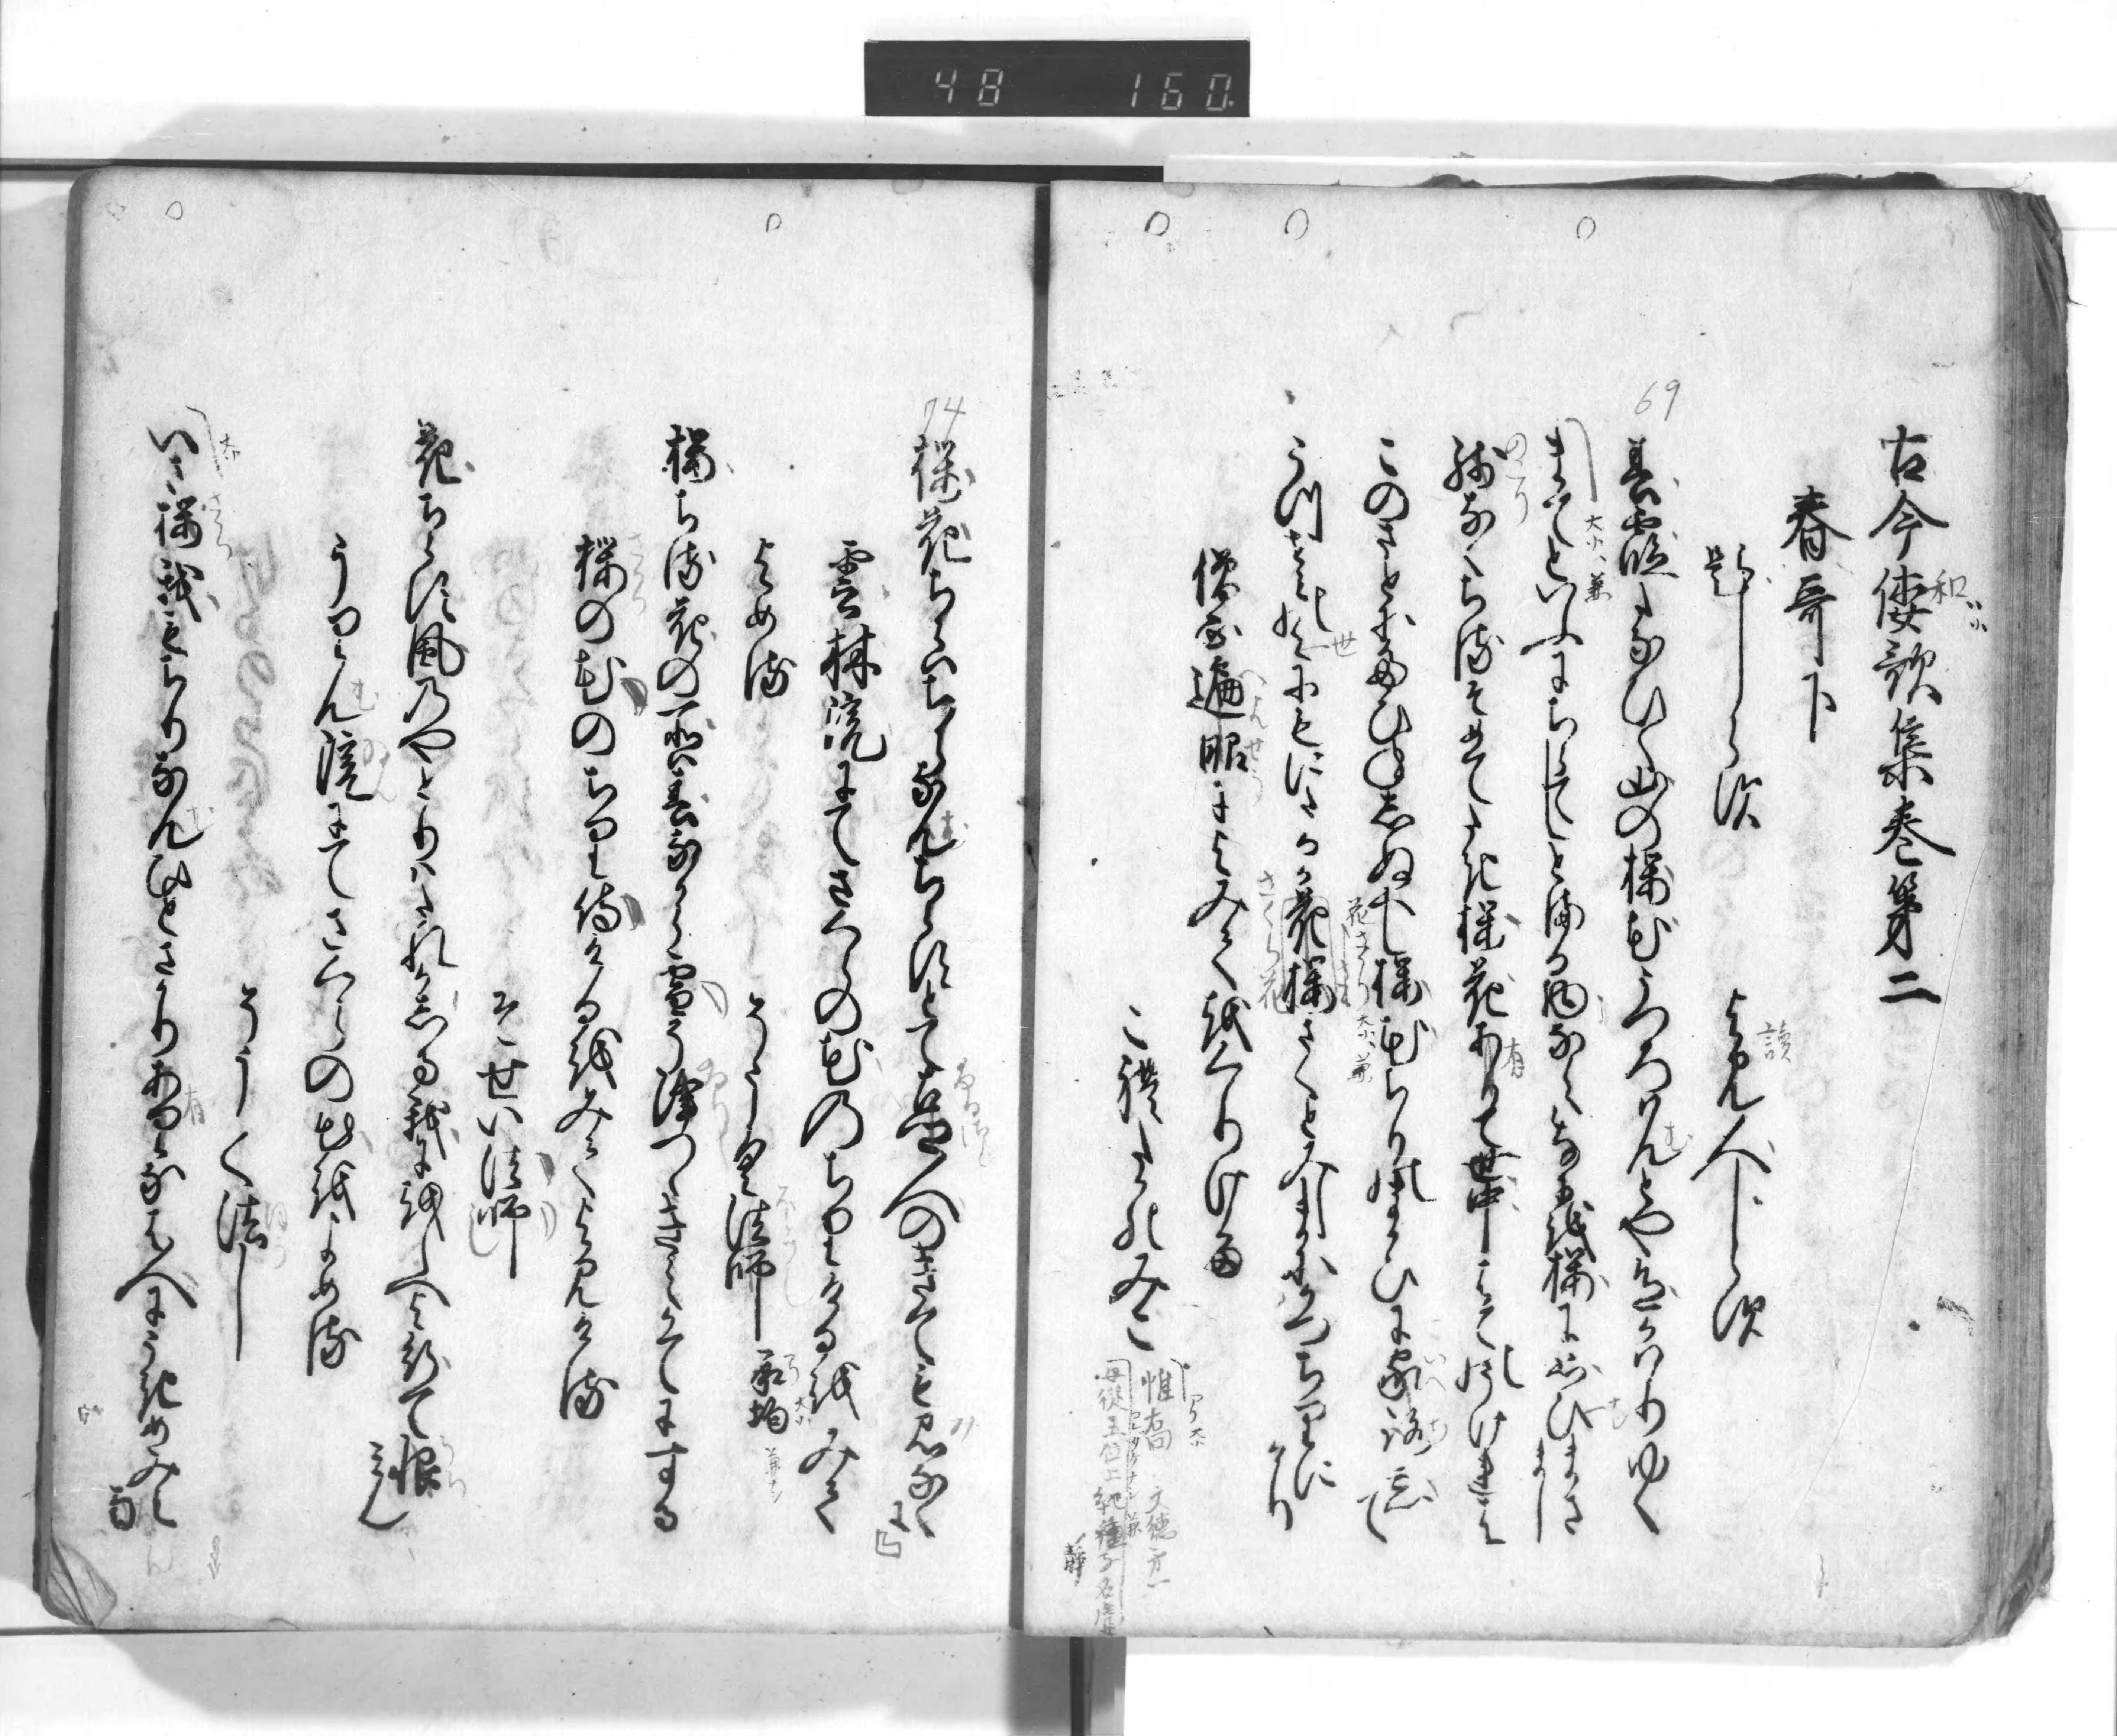 48 160
古今倭歌集巻第二
春哥下
題しらす
よみ人しらす
69
春霞たなひく山の桜花うつろはんとや色かはりゆく
まてといふにちらてしとまる物ならはなにを桜に思ひまさまし
残なくちるそめてたき桜花ありて世中はてのうけれは
このさとにたひねしぬへし桜花ちりのまかひに家路忘て
うつせみの世にもにたるか花桜さくとみしまにかつちりにけり
僧正遍昭によみてをくりける
これたかのみこ
惟喬 文徳
74
桜花ちらはちらなんちらすとて古人のきても見なくに
雲林院にてさくらの花のちりけるをみて
よめる
そうく法師 承均
桜ちる花の所は春なから雪そ降つゝきえかてにする
桜の花のちり侍けるをみてよみける
そせい法師
花ちらす風のやとりはたれかしる我にをしへよ行て恨みん
うりん院にてさくらの花をよめる
そうく法し
いさ桜我もちりなんひとさかりありなは人にうきめみえなん